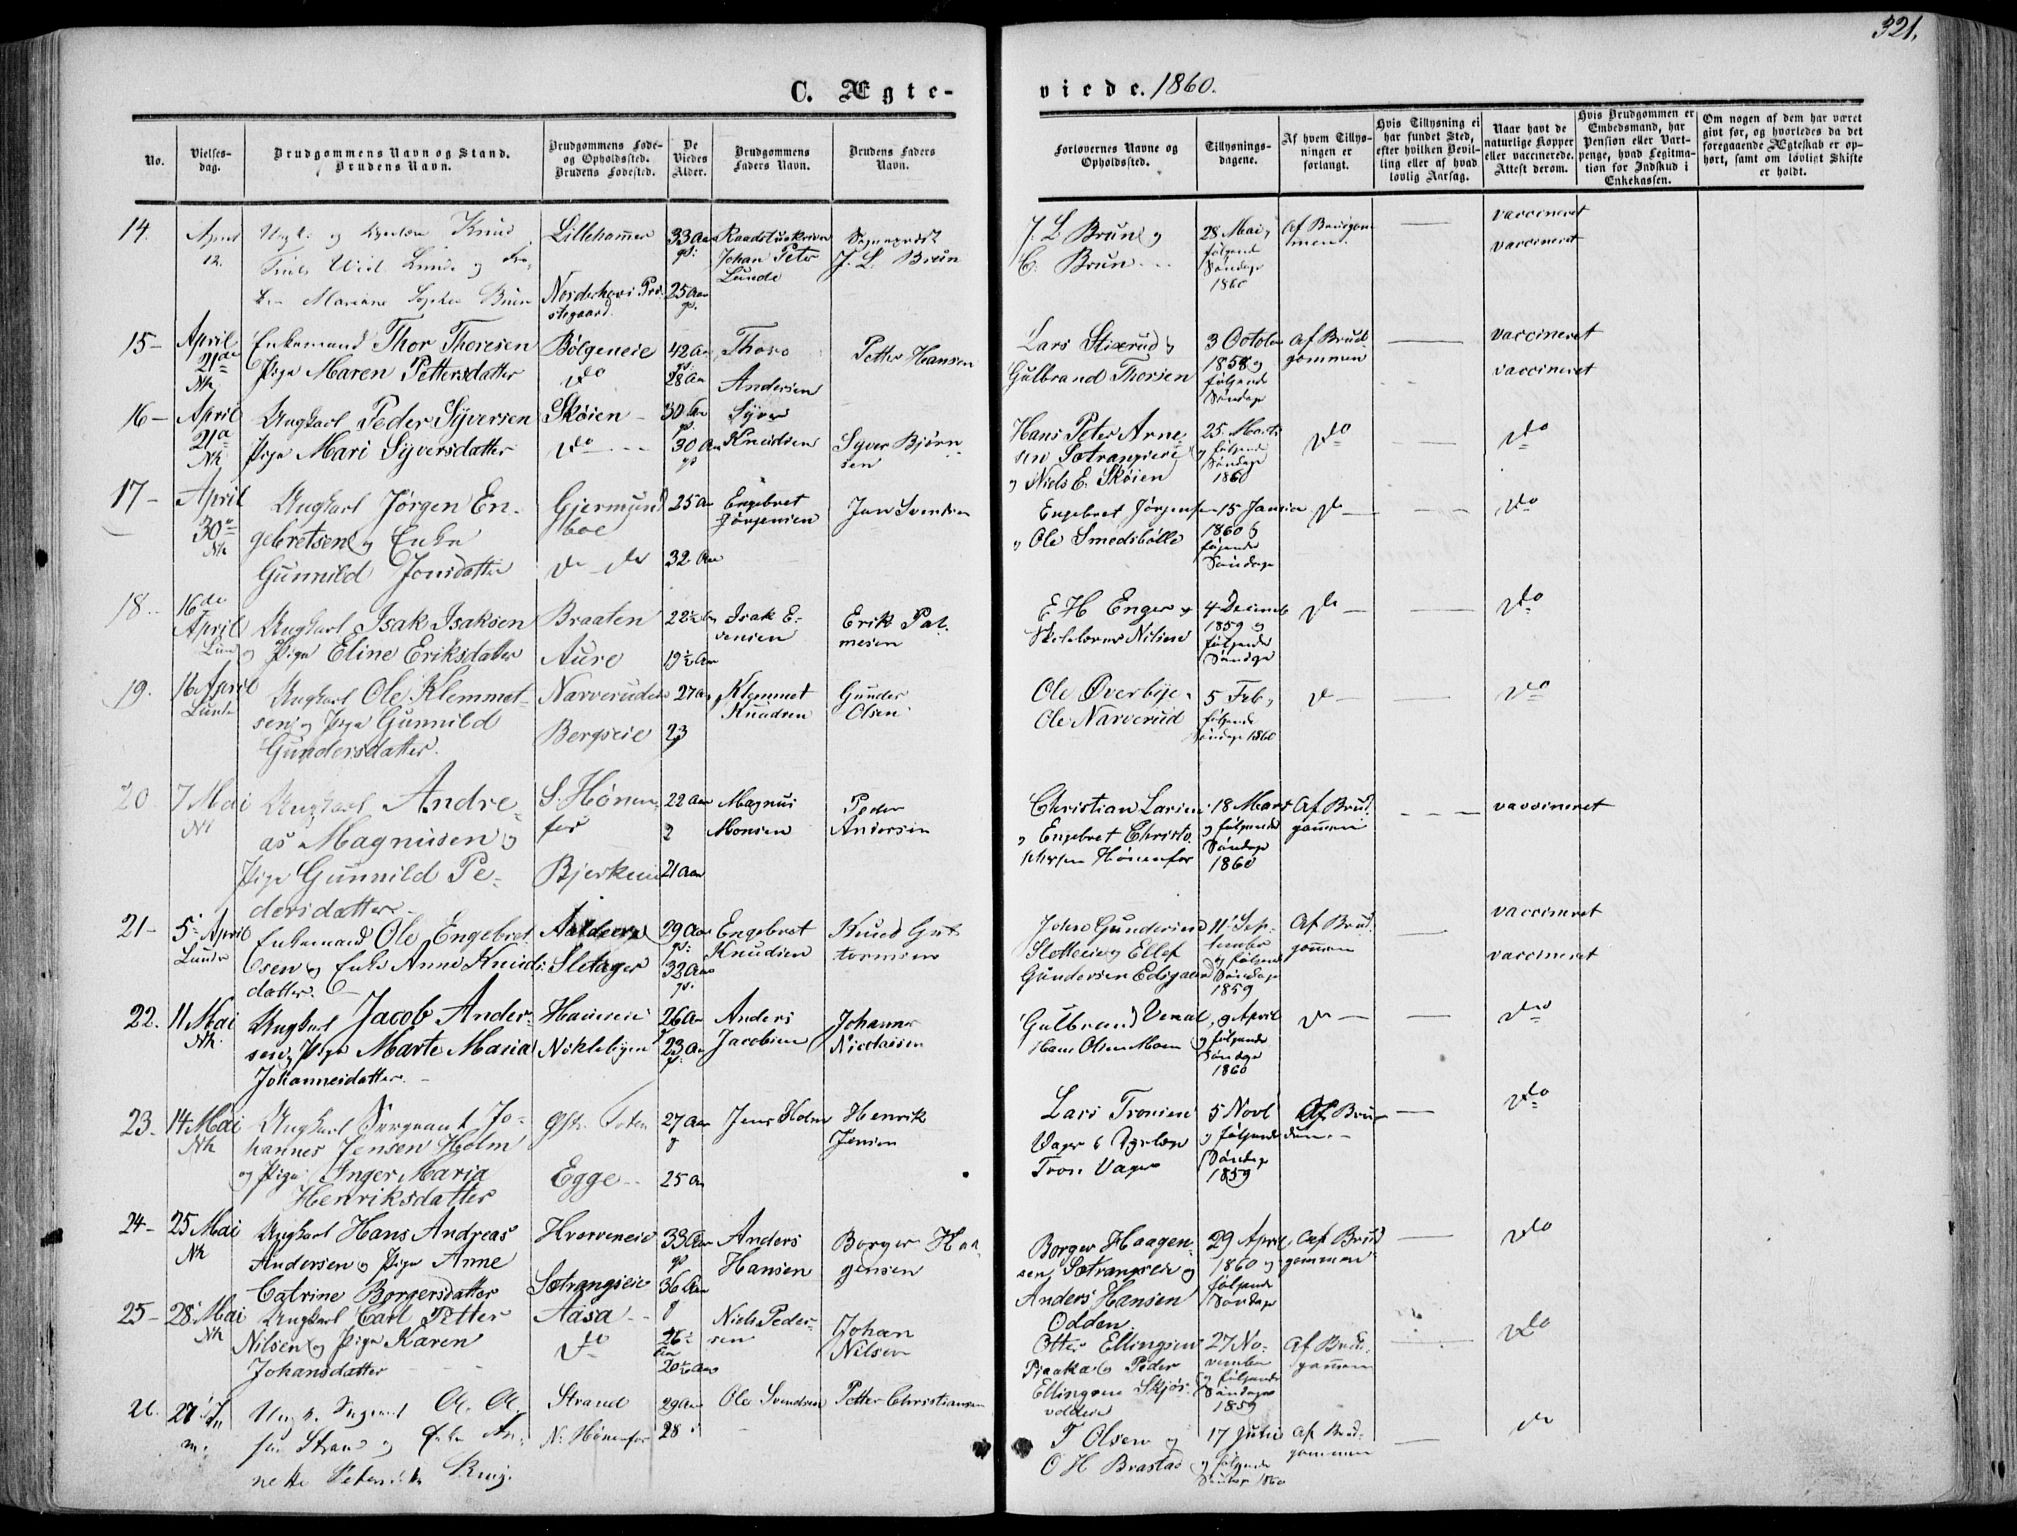 321.
C. Ægte-
viede. 1860.
No.
Vielses-
dag.
Brudgommens Navn og Stand.
Brudens Navn.
Brudgommens Føde-
og Opholdssted.
Brudens Fødested.
De
Viedes
Alder.
Brudgommens
Faders Navn.
Brudens Faders
Navn.
Forlovernes Navne og
Opholdssted.
Tillysnings-
dagene.
Af hvem Tillys-
ningen er
forlangt.
Hvis Tillysning ei
har fundet Sted,
efter hvilken Bevil-
ling eller af hvad
lovlig Aarsag.
Naar havt de
naturlige Kopper
eller vaccinerede.
Attest derom.
Hvis Brudgommen er
Embedsmand, har
Pension eller Vart-
penge, hvad Legitima-
tion for Indskud i
Enkekassen.
Om nogen af dem har været
givt før, og hvorledes da det
foregaaende Ægteskab er op-
hørt, samt om lovligt Skifte
er holdt.
14.
12.
Ungk. og Knud
Lunde og
Marianne Sophie Brun
Lillehammer
Norderhovs Præ-
stegaard
33 Aar
25 Aar
Raadstuskriver
Johan Peter
Lunde
Sogneprest
J. L. Brun
J. L. Brun og
C. Brun
28 Mai
følgende
Søndage
1860
Af Brudgom-
men.
vaccineret
vaccineret
15-
April
21de
Nh
Enkemand Thor Thoresen
Pige Maren Pettersdatter
Bølgeneie
do
42 Aar
28 Aar
Thoro
Andersen
Petter Hansen
Lars Stixrud
Gulbrand Thorsen
3 October
1858 og
følgende
Søndage
Af Brud-
gommen
vaccineret
vaccineret
16-
April
21de
Nh
Ungkarl Peder Syversen
Pige Mari Syversdatter
Skøien
do
30 Aar
30 Aar
Syver
Knudsen
Syver Bjørn-
sen
Hans Peter Arne-
sen Sætrangseie
og Niels E. Skøien
25 Marts
og følgende
Søndage
1860
do
do
17-
April
30te
Nh
Ungkarl Jørgen En-
gebretsen og Enke
Gunnild Jonsdatter
Gjermund-
boe
do do
25 Aar
32 Aar
Engebret
Jørgensen
Jon Svendsen
Engebret Jørgensen
og Ole Smedsbølle
15 Januar
1860 og
følgende
Søndage
do
do
18.
16de
April
Lunde
Ungkarl Isak Isaksen
og Pige Eline Eriksdatter
Braaten
Aure
22½ Aar
19½ Aar
Isak E-
vensen
Erik Pal-
mesen
E H Enger og
4 Decemb
1859 og
følgende
Søndage
do
do
19.
16 April
Lunde
Ungkarl Ole Klemmet-
sen og Pige Gunnild
Gundersdatter.
Narverudeie
Bergseie
27 Aar
23
Klemmet
Knudsen
Gunder
Olsen
Ole Øverbye
Ole Narverud
5 Feb
følgende
Søndage 1860
do
do
20
7 Mai
Nh
Ungkarl Andre-
as Magnusen og
Pige Gunnild Pe-
dersdatter
S. Hønne-
fos
Bjerkeeie
22 Aar
21 Aar
Magnus
Monsen
Peder
Andersen
Christian Larsen
og Engebret Christo-
phersen Hønenfos
18 Mars
og følgende
Søndage
1860
Af Brud-
gommen
vaccineret
21-
5 April
Lunde
Enkemand Ole Engebret-
sen og Enke Anne Knuds-
datter.
Sletager
29 Aar
32 Aar
Engebret
Knudsen
Knud Gut-
tormsen
John Gundersen
Sletteeie og Ellef
Gundersen
11 Sep-
tember
og følgende
Søndage
1859
Af Brud-
gommen
vaccineret
vaccineret
22.
11 Mai
Nh.
Ungkarl Jacob Ander-
sen og Pige Marte Maria
Johannesdatter.
Nøklebyen
26 Aar
23 Aar
Anders
Jacobsen
Johannes
Nicolaisen
Gulbrand Vemal
Hans Olsen Moen
9 April
og følgende
Søndage
1860
do
do
23.
14 Mai
Nh
Ungkarl Sergeant Jo-
hannes Jensen Holm
og Pige Inger Maria
Henriksdatter
Østr. Toten
Egge
27 Aar
25 Aar
Jens Holm
Henrik
Jensen
Lars Tronsen
Vager
Tron Vager
5 Novb
og følgende
Søndage
1859
Af Bru-
den
do
24-
25 Mai
Nh
Ungkarl Hans Andreas
Andersen og Pige Anne
Catrine Borgersdatter
Hverveneie
Sætrangseie
33 Aar
36 Aar
Anders
Hansen
Borger Haa-
gensen
Borger Haagen-
sen Sætrangseie og
Anders Hansen
Odden
29 April
1860 og
følgende
Søndage
Af Brud-
gommen
do
25-
28 Mai
Nh
Ungkarl Carl Petter
Nilsen og Pige Karen
Johansdatter
Aasa
do
26½
Aar
20½ Aar
Niels Peder-
sen
Johan
Nilsen
Otter Ellingsen
Praaka og Peder
Ellingsen Skjøs-
voldeie
27 No-
vember
og følgende
Søndage
1859
Af Brud-
gommen
do
26.
27
Ungk. Ole Ol-
sen Strand og Enke An-
nette
Strand
N. Hønefos
29 Aar
28
Ole Svendsen
Petter Christiansen
T Olsen og
O H Brastad
17 Juni
og følgende
Søndage 1860
Af Brud-
gommen
do